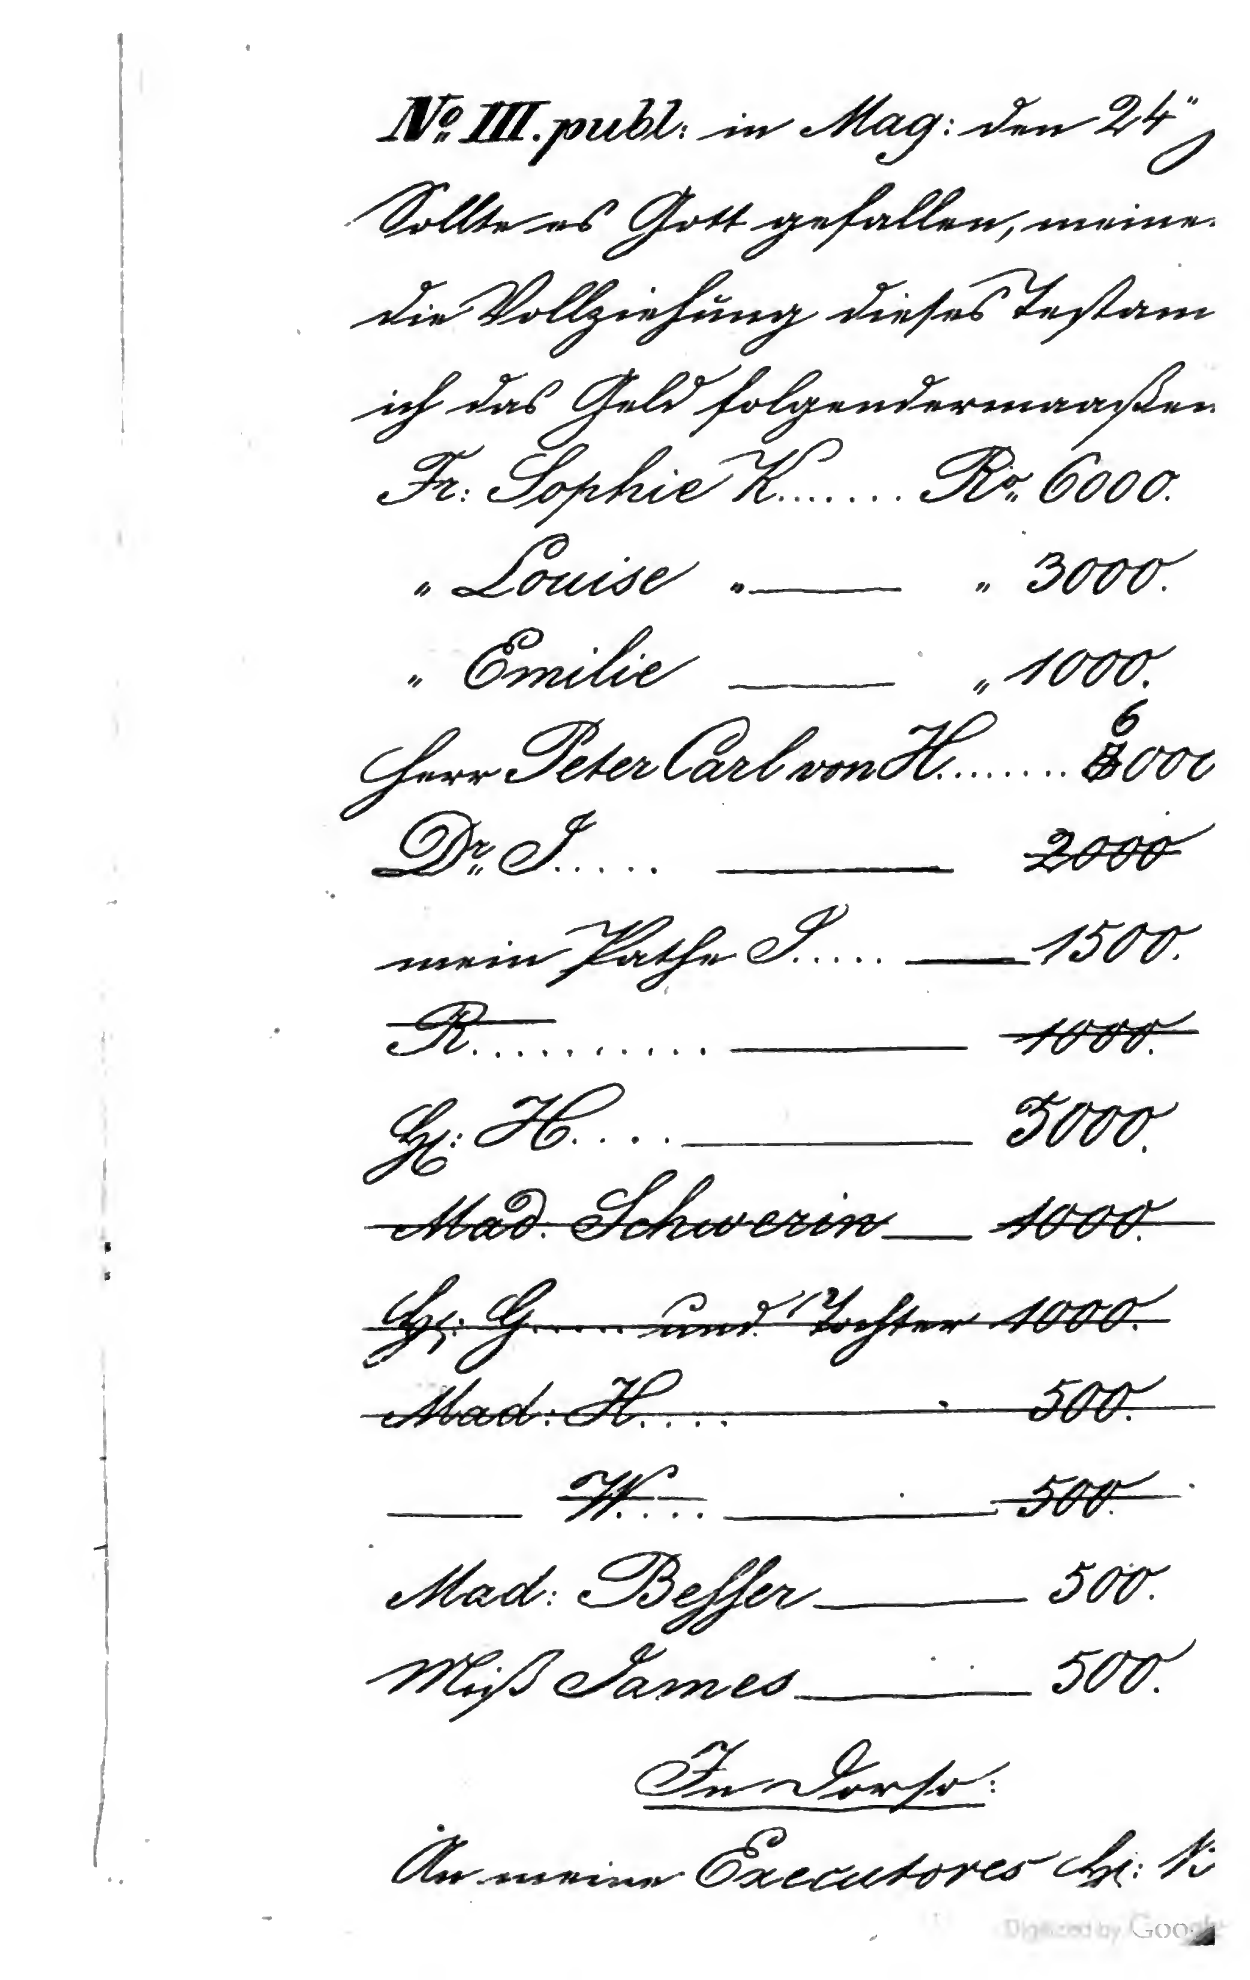 No. III. publ: in Mag: den 24"
Sollte es Gott gefallen, meine
die Vollziehung dieses Testam
ich das Geld folgendermaaßen
Fr: Sophie K....... Ro. 6000.
" Louise " ——— " 3000.
" Emilie ——— " 1000.
6
Herr Peter Carl von H........ 3000
Dr. J..... ——— 2000
mein Pathe S..... ——— 1500.
R.......... ——— 1000.
H: H.... ——— 5000.
Mad. Schwerin ——— 1000.
H: G..... und Tochter 1000.
Mad: H.... 500.
——— W.... ——— 500.
Mad: Besser ——— 500.
Miß James ——— 500.
In Dorso:
An meine Executores H:
Digitized by Google